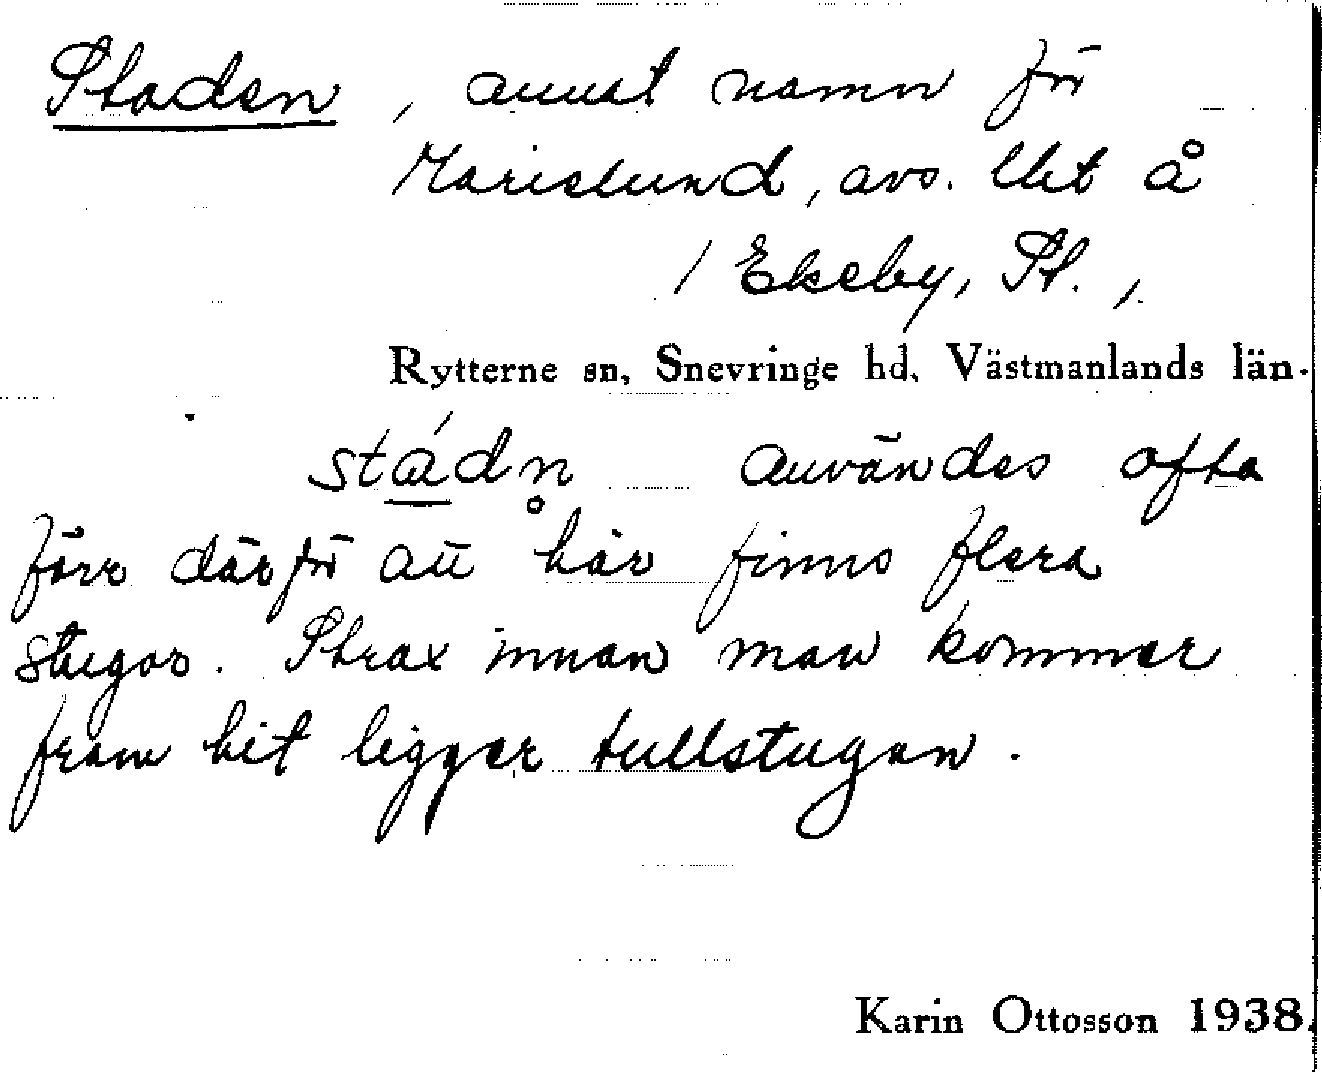 Staden, annat namn för
Marielund, avs. lht å
/ Ekeby, St. /.
Rytterne sn, Snevringe hd, Västmanlands län.
stádn̥ användes ofta
förr därför att här finns flera
stugor. Strax innan man kommer
fram hit ligger tullstugan.
Karin Ottosson 1938.